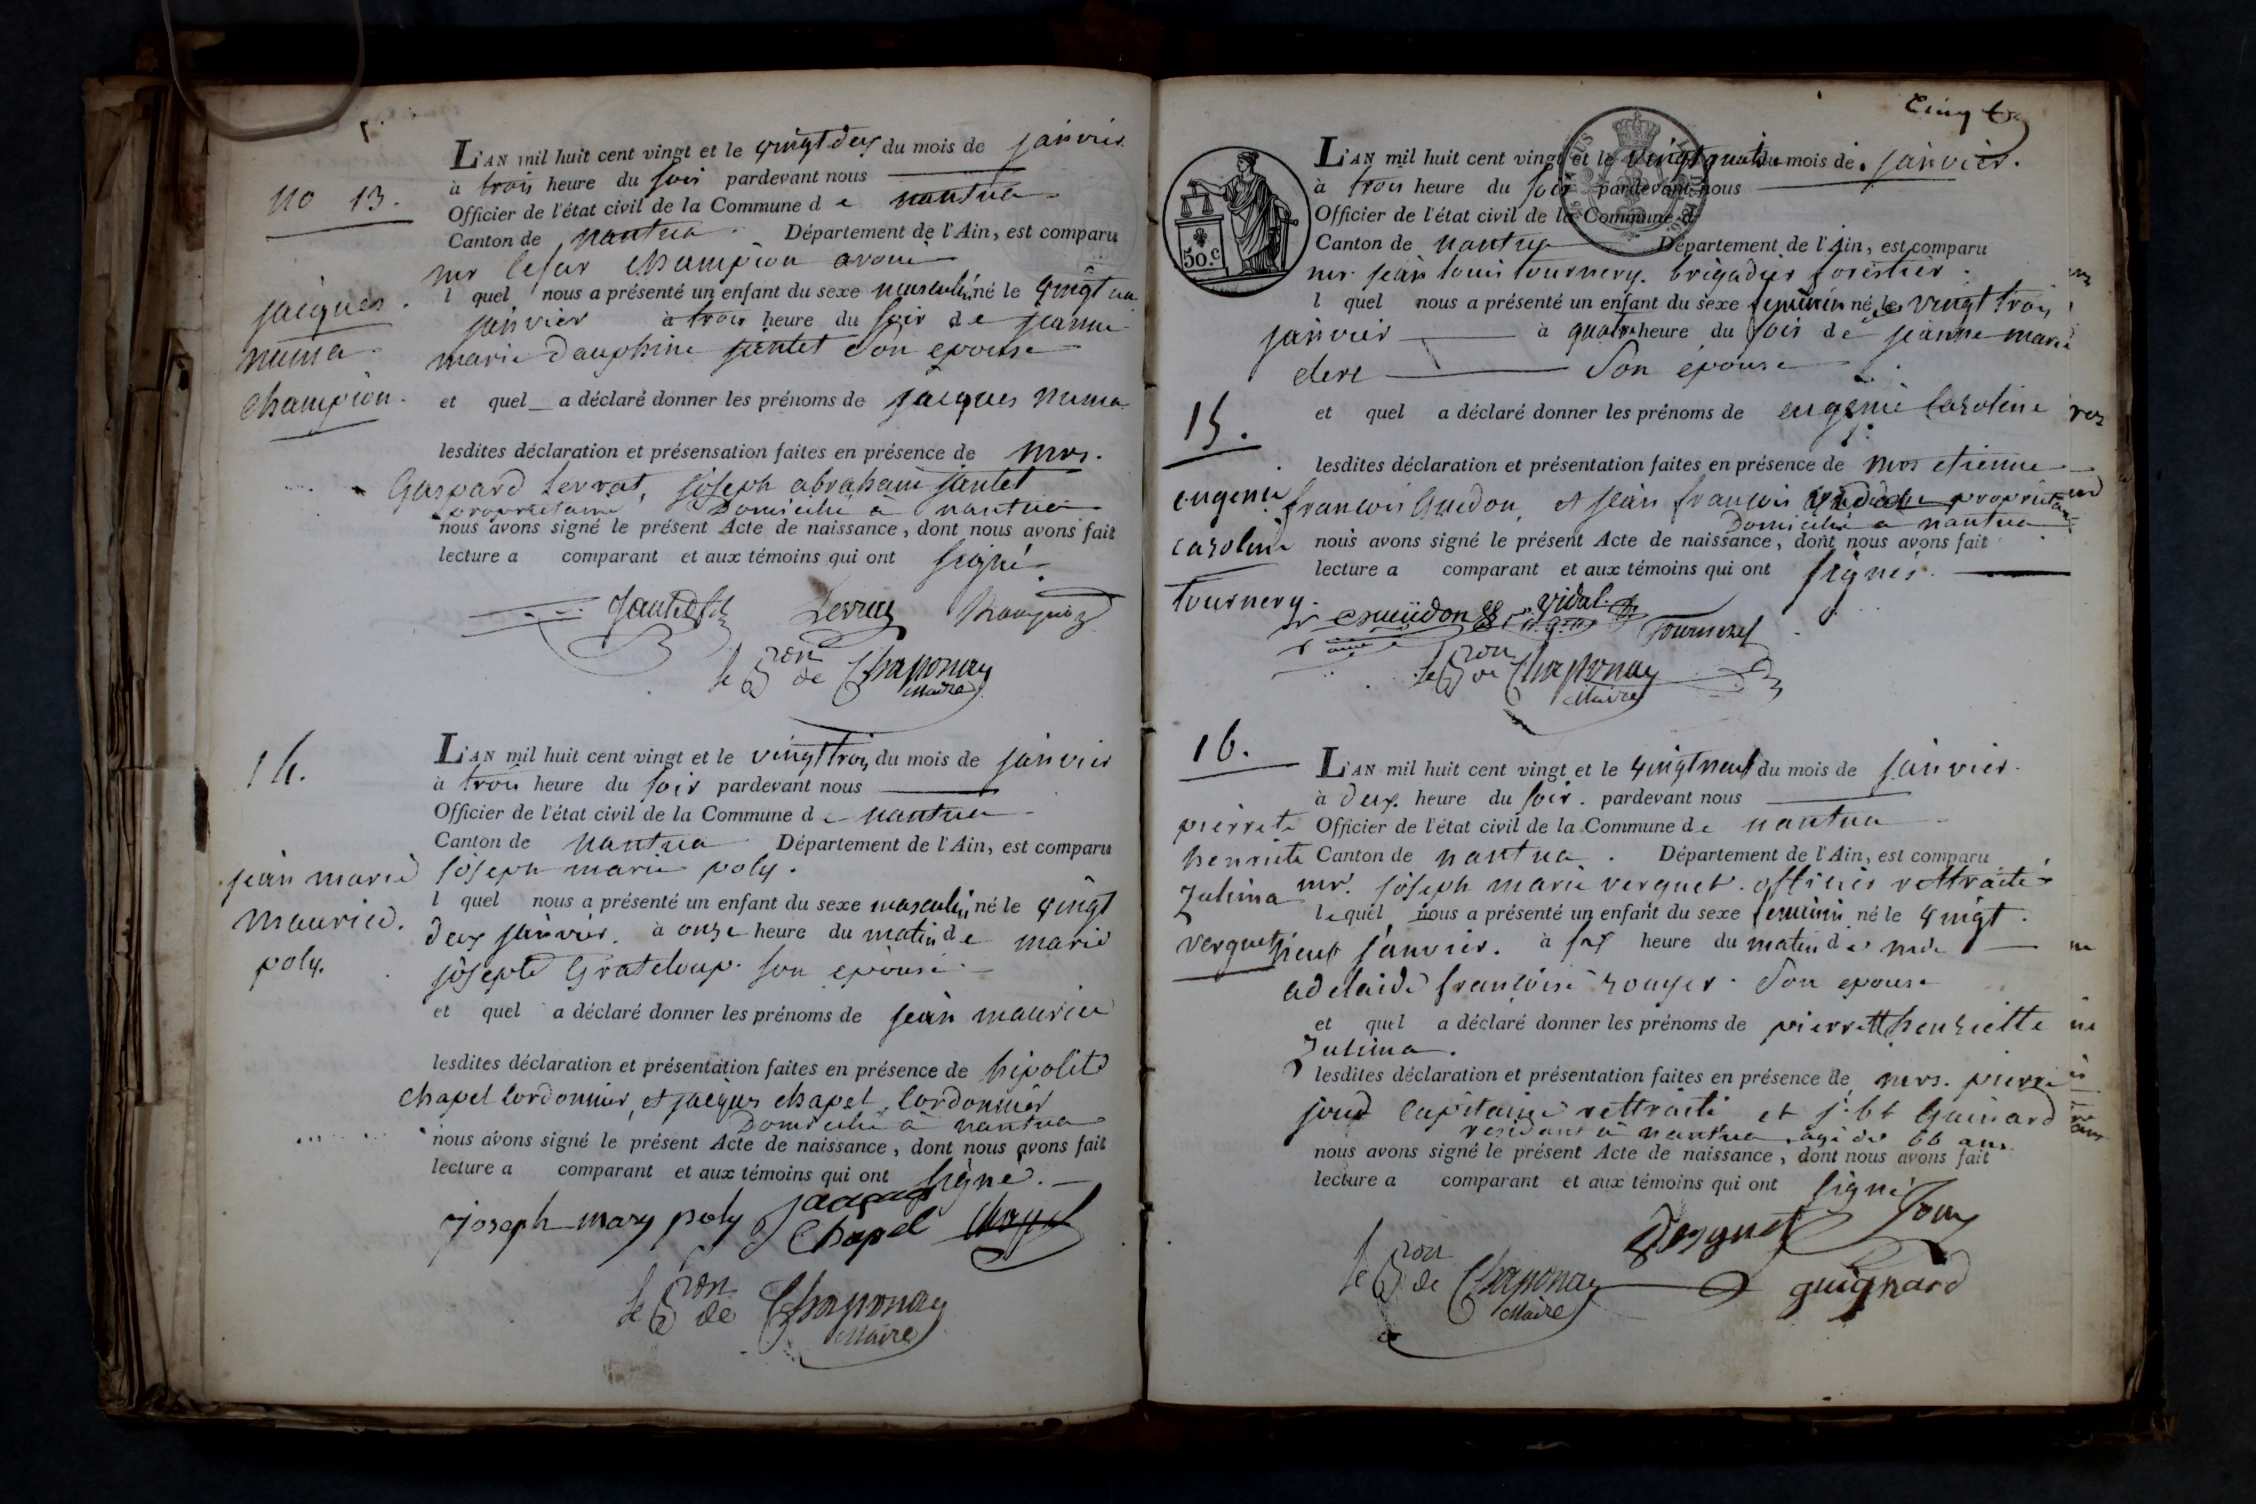 no 13.
jacques
numa
champion.
L'AN mil huit cent vingt et le vingt deux du mois de janvier
à trois heure du soir pardevant nous
Officier de l'état civil de la Commune d e nantua
Canton de nantua. Département de l'Ain, est comparu
mr Cesar champion avoué
l quel nous a présenté un enfant du sexe masculin né le vingt un
janvier à trois heure du soir de jeanne
marie Dauphine jantet Son epouse
et quel a déclaré donner les prénoms de jacques numa
lesdites déclaration et présensation faites en présence de mrs.
Gaspard Serrat, joseph abraham jantet
proprietaire Domicilié à nantua
nous avons signé le présent Acte de naissance, dont nous avons fait
lecture a comparant et aux témoins qui ont signé.
Jantet
le Bon de Chaponay
Maire
14.
jean marie
maurice.
poly.
L'AN mil huit cent vingt et le vingt trois du mois de janvier
à trois heure du soir pardevant nous
Officier de l'état civil de la Commune d e nantua
Canton de nantua Département de l'Ain, est comparu
joseph marie poly.
l quel nous a présenté un enfant du sexe masculin né le vingt
deux janvier. à onze heure du matin de marie
josepte Grateloup. son epouse
et quel a déclaré donner les prénoms de jean maurice
lesdites déclaration et présentation faites en présence de hipolite
chapel Cordonnier, et jacques chapel, Cordonnier
Domicilié à nantua
nous avons signé le présent Acte de naissance, dont nous avons fait
lecture a comparant et aux témoins qui ont signé.
joseph mary poly jacques
Chapel Chapel
le Bon de Chaponay
Maire
Cinq
50.c
L'AN mil huit cent vingt et le vingt quatre du mois de janvier.
à trois heure du soir pardevant nous
Officier de l'état civil de la Commune d
Canton de nantua Département de l'Ain, est comparu
mr. jean louis tournery. brigadier forestier.
l quel nous a présenté un enfant du sexe feminin né le vingt trois
janvier à quatre heure du soir de jeanne marie
clerc Son epouse
15.
eugenie
caroline
tournery.
et quel a déclaré donner les prénoms de eugenie Caroline
lesdites déclaration et présentation faites en présence de mrs etienne
francois Guedon, et jean francois proprietaire
Domicilié a nantua
nous avons signé le présent Acte de naissance, dont nous avons fait
lecture a comparant et aux témoins qui ont signés.
Gueüdon Vidal
le Bon de Chaponay
Maire
16.
pierrete
henriete
Zulima
verguet
L'AN mil huit cent vingt et le vingt neuf du mois de janvier.
à deux heure du soir. pardevant nous
Officier de l'état civil de la Commune de nantua
Canton de nantua. Département de l'Ain, est comparu
mr. joseph marie verguet. officier rettraité
le quel nous a présenté un enfant du sexe feminin né le vingt.
neuf janvier. à six heure du matin de mde
adelaide françoise rouyer. Son epouse
et quel a déclaré donner les prénoms de pierrett henriette
Zulima.
lesdites déclaration et présentation faites en présence de mrs. pierre
joud Capitaine rettraité et j. bt Guinard
residant à nantua, agé de 66 ans
nous avons signé le présent Acte de naissance, dont nous avons fait
lecture a comparant et aux témoins qui ont signé
Verguet
guignard
le Bon de Chaponay
Maire